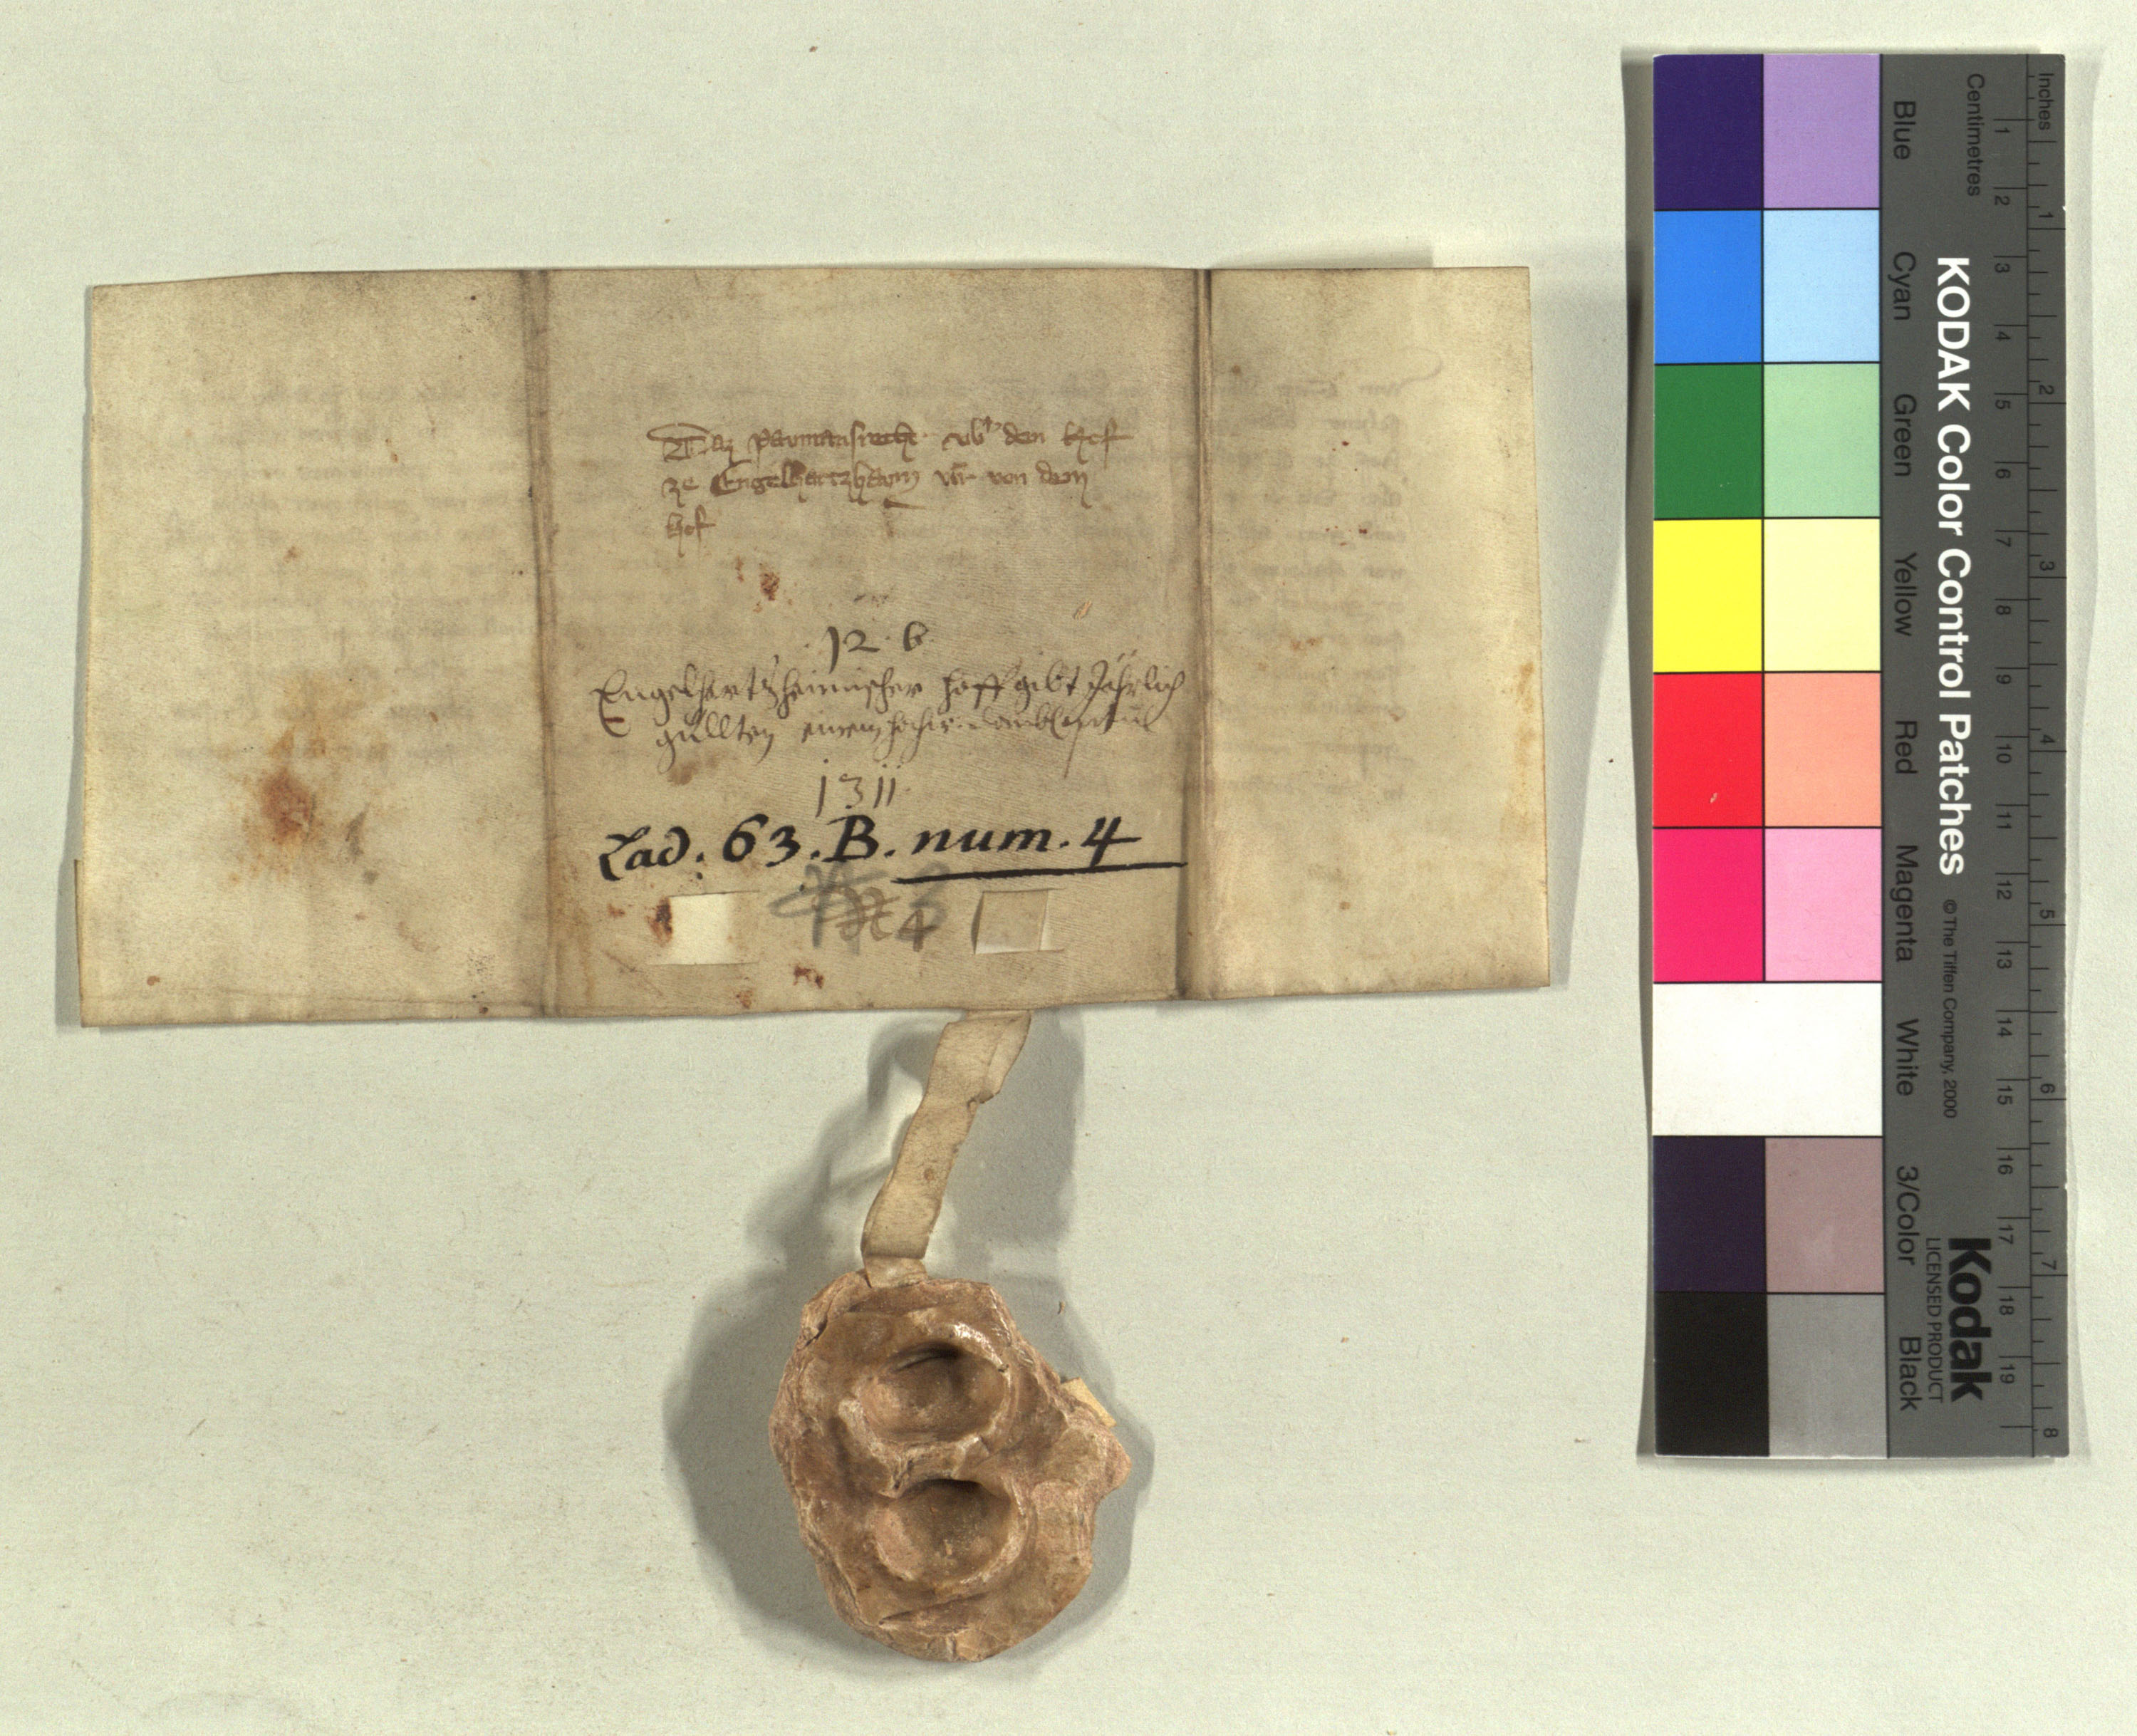 Daz paumansrecht vbʼ den hof
ze Engelhartzhaym vñ von dem
hof
12. b
Engelhartzheimischer hoff gibt Jährlich
güllten einem hochw.
1311
Lad: 63. B. num. 4
4
Inches
Centimetres
1 2 3 4 5 6 7 8
1 2 3 4 5 6 7 8 9 10 11 12 13 14 15 16 17 18 19
KODAK Color Control Patches © The Tiffen Company, 2000
Kodak
LICENSED PRODUCT
Blue Cyan Green Yellow Red Magenta White 3/Color Black